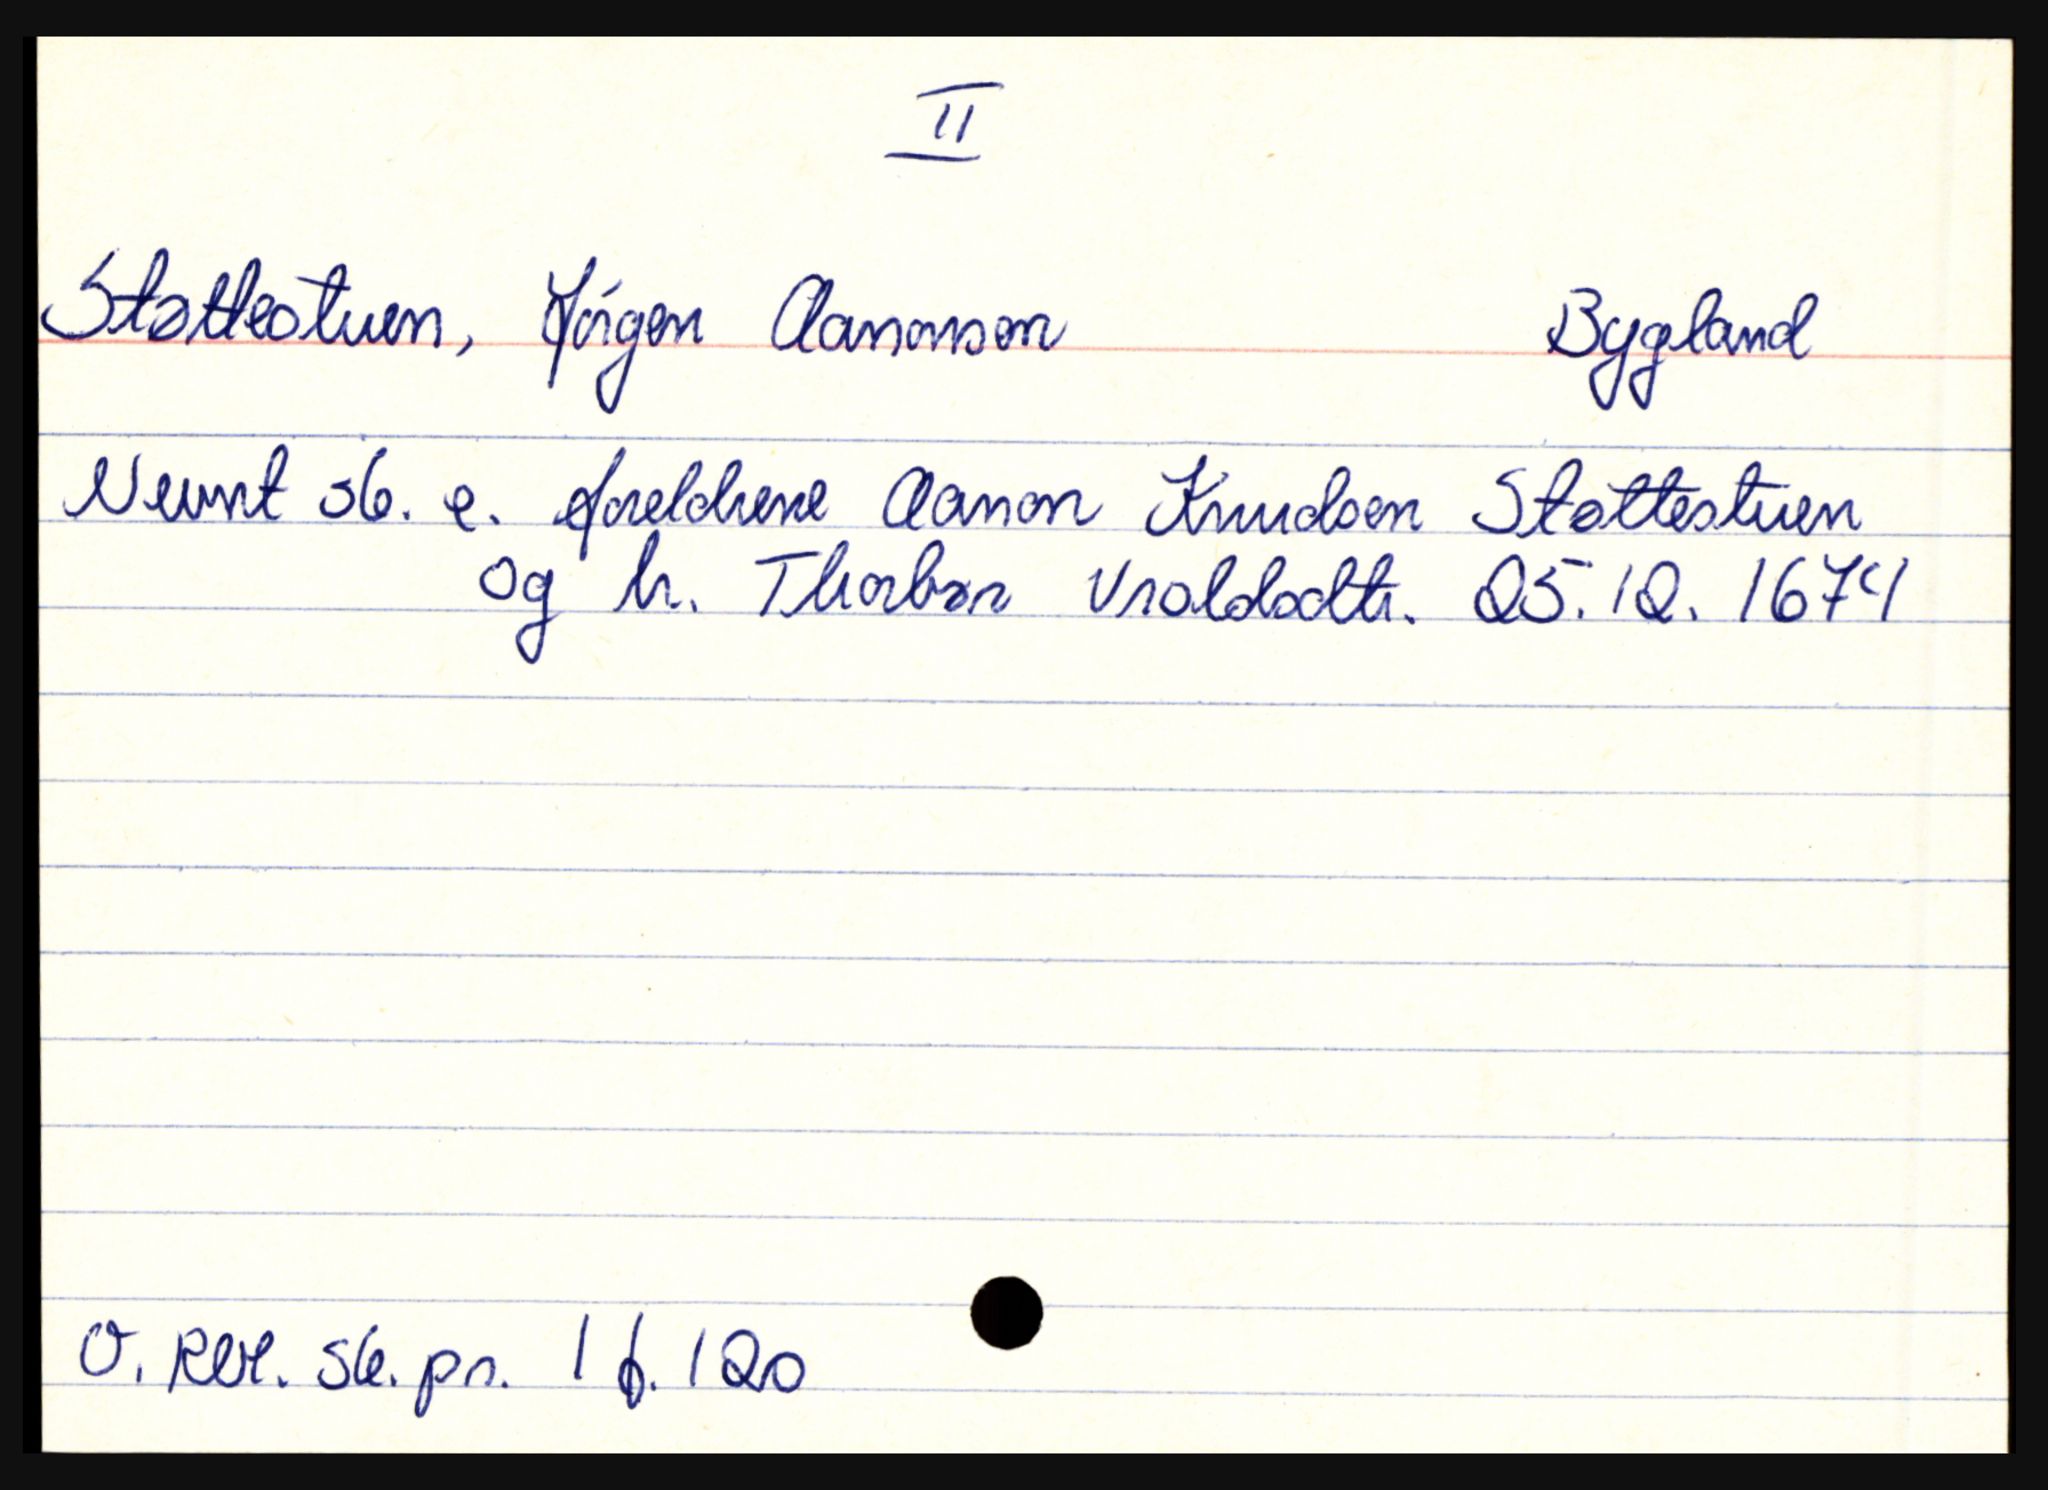 II
Støttestuen, Jörgen Aanonsen Bygland
Nevnt sk. e. foreldrene Aanon Knudsen Støttestuen
og h. Thorbør Vraldsdtr. 25.12.1674
O. Rbl. sk. pr. 1 f. 120